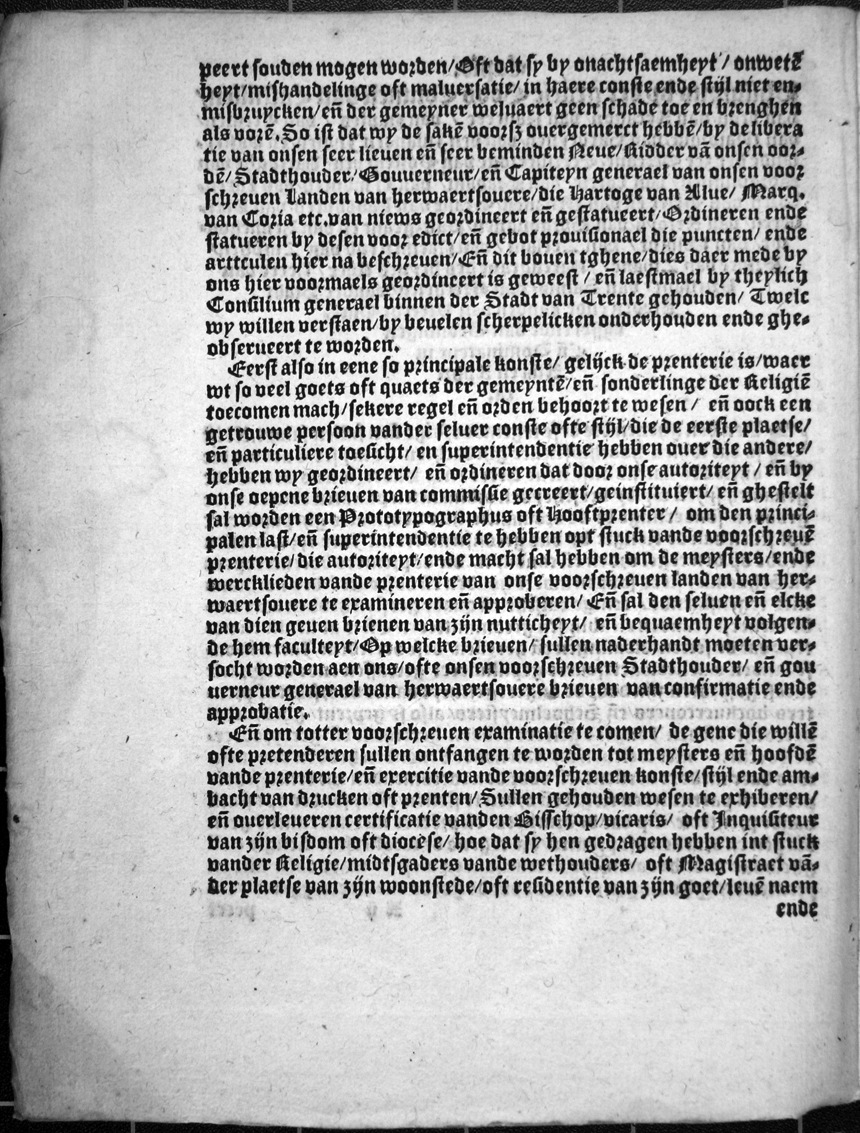 peert souden mogen worden/Oft dat sy by onachtsaemheyt/ onwetē
heyt/mishandelinge oft maluersatie/ in haere conste ende stijl niet en-
misbruycken/eñ der gemeyner weluaert geen schade toe en brenghen
als vorē. So ist dat wy de sakē voorsz ouergemerct hebbē/by delibera
tie van onsen seer lieuen eñ seer beminden Neue/Ridder vā onsen oor-
dē/Stadthouder/Gouuerneur/eñ Capiteyn generael van onsen voor
schreuen Landen van herwaertsouere/die Hartoge van Alue/ Marq.
van Coria etc.van niews geordineert eñ gestatueert/Ordineren ende
statueren by desen voor edict/eñ gebot prouisionael die puncten/ ende
arttculen hier na beschreuen/Eñ dit bouen tghene/dies daer mede by
ons hier voormaels geordineert is geweest / eñ laestmael by theylich
Consilium generael binnen der Stadt van Trente gehouden/ Twelc
wy willen verstaen/by beuelen scherpelicken onderhouden ende ghe-
obserueert te worden.
Eerst also in eene so principale konste/ gelijck de prenterie is/waer
wt so veel goets oft quaets der gemeyntē/eñ sonderlinge der Religiē
toecomen mach/sekere regel eñ orden behoort te wesen / eñ oock een
getrouwe persoon vander seluer conste ofte stijl/die de eerste plaetse/
eñ particuliere toesicht/ en superintendentie hebben ouer die andere/
hebben wy geordineert/ eñ ordineren dat door onse autoriteyt / eñ by
onse oepene brieuen van commissie gecreert/geinstituiert/ eñ ghestelt
sal worden een Prototypographus oft Hooftprenter / om den princi-
palen last/eñ superintendentie te hebben opt stuck vande voorschreuē
prenterie/die autoriteyt/ende macht sal hebben om de meysters/ende
wercklieden vande prenterie van onse voorschreuen landen van her-
waertsouere te examineren eñ approberen/ Eñ sal den seluen eñ elcke
van dien geuen brienen van zijn nutticheyt/ eñ bequaemheyt volgen-
de hem faculteyt/Op welcke brieuen/ sullen naderhandt moeten ver-
socht worden aen ons/ofte onsen voorschreuen Stadthouder/ eñ gou
uerneur generael van herwaertsouere brieuen van confirmatie ende
approbatie.
Eñ om totter voorschreuen examinatie te comen/ de gene die willē
ofte pretenderen sullen ontfangen te worden tot meysters eñ hoofdē
vande prenterie/eñ exercitie vande voorschreuen konste/stijl ende am-
bacht van drucken oft prenten/Sullen gehouden wesen te exhiberen/
eñ ouerleueren certificatie vanden Bisschop/vicaris/ oft Inquisiteur
van zijn bisdom oft diocese/ hoe dat sy hen gedragen hebben int stuck
vander Religie/midtsgaders vande wethouders/ oft Magistraet vā-
der plaetse van zijn woonstede/oft residentie van zijn goet/leuē naem
ende